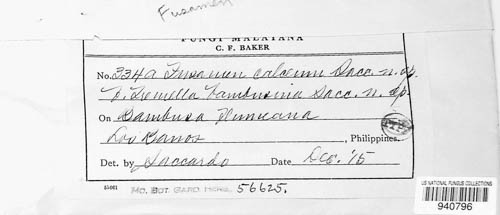 Fusamen
FUNGI MALAYANA
C. F. BAKER
No. 334a Fusamen calceum Sacc. n. sp.
Tremella bambusina Sacc. n. sp.
On Bambusa Blumeana
Los Banos, Philippines.
Det. by Saccardo Date Dec. '15
MO. BOT. GARD HERB. 56625.
US NATIONAL FUNGUS COLLECTIONS
940796